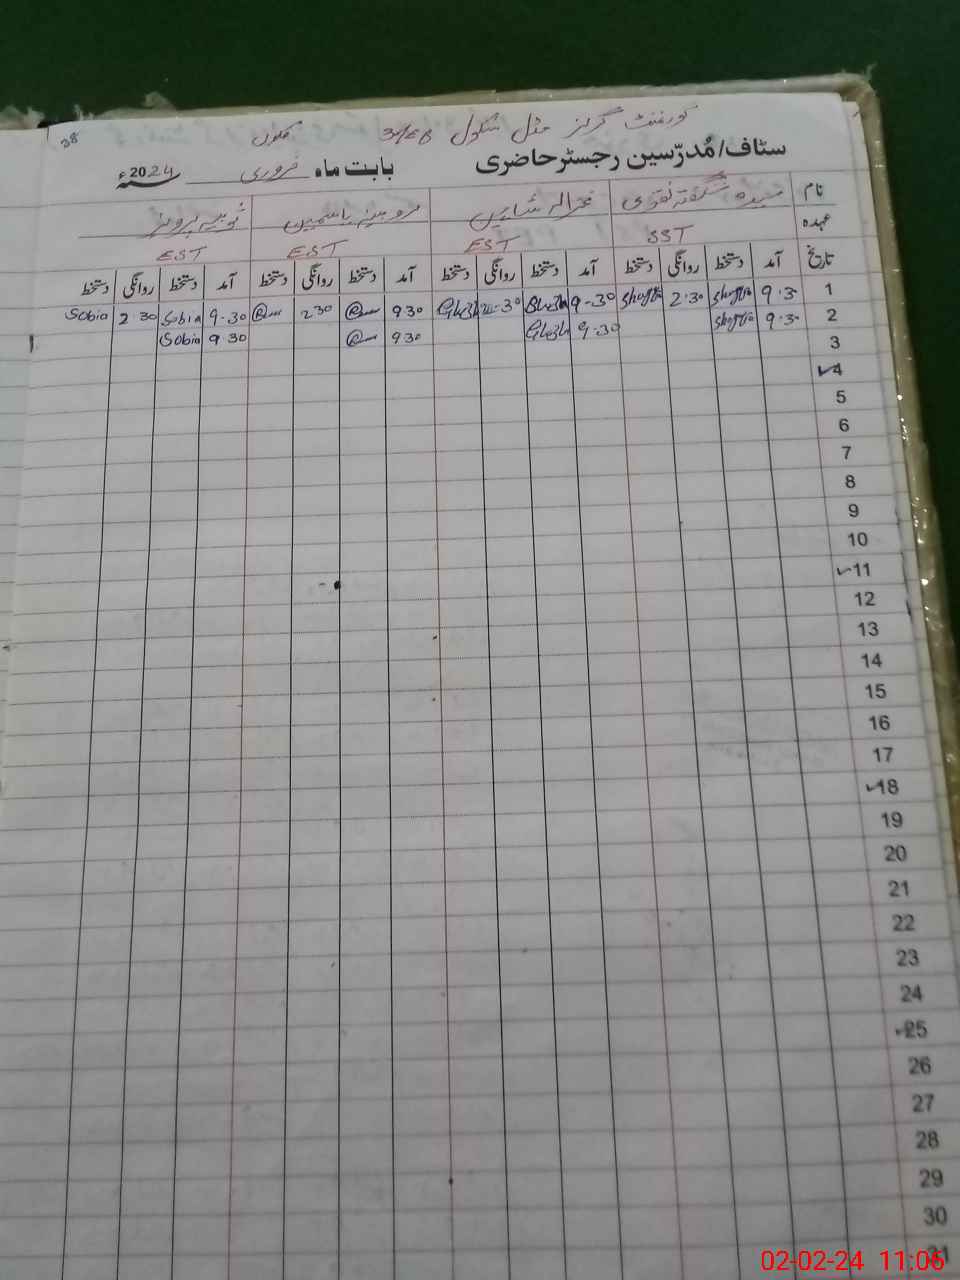 38
گورنمنٹ گرلز مڈل سکول 34/EB
سٹاف/مُدرّسین رجسٹر حاضری بابت ماہ فروری 2024ء
نام سیدہ شگفتہ نقوی غزالہ شاہین روبینہ یاسمین ثوبیہ پرویز
عہدہ SST EST EST EST
تاریخ آمد دستخط روانگی دستخط آمد دستخط روانگی دستخط آمد دستخط روانگی دستخط آمد دستخط روانگی دستخط
1 9.30 2.30 9-30 9 30 2 30 9.30 Sobia 2.30 Sobia
2 9.30 9.30 9 30 9 30 Sobia
3
4
5
6
7
8
9
10
11
12
13
14
15
16
17
18
19
20
21
22
23
24
25
26
27
28
29
30
31
02-02-24 11:06